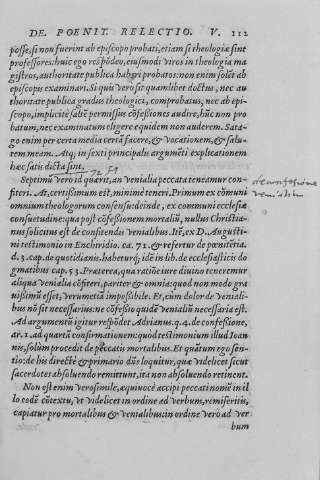 DE POENIT. RELECTIO. V. 112
posse, si non fuerint ab episcopo probati, etiam si theologiæ sint
professores: huic ego rēspōdeo, eiusmodi viros in theologia ma
gistros, authoritate publica habēri probatos: non enim solēt ab
episcopis examinari. Si quis verò sit quamlibet doctus, nec au
thoritate publica gradus theologici, comprobatus, nec ab epi-
scopo, implicitè saltē permissus cōfessiones audire, hūc non pro
batum, nec examinatum eligere equidem non auderem. Sata-
go enim per certa media certā facere, & vocationem, & salu-
tem meam. Atq; in sexti principalis argumēti explicationem
hæc satis dicta sint.
Septimū verò id quærit, an venialia peccata teneamur con-
fiteri. At, certissimum est, minimè teneri. Primum ex cōmuni
omnium theologorum consensu: deinde, ex communi ecclesiæ
consuetudine: qua post cōfessionem mortaliū, nullus Christia-
nus solicitus est de confitendis venialibus. Itē, ex D. Augusti-
ni testimonio in Enchiridio. ca. 71. & refertur de pœnitētia.
d. 3. cap. de quotidianis. habeturq; idē in lib. de ecclesiasticis do
gmatibus cap. 53. Præterea, qua ratiōe iure diuino teneremur
aliqua venialia cōfiteri, pariter & omnia: quod non modo gra
uissimū esset, verumetiā impossibile. Et, cùm dolor de veniali-
bus nō sit necessarius: ne cōfessio quidē venialiū necessaria est.
Ad argumentū igitur respōdet Adrianus. q. 4. de confessione,
ar. 1. ad quartū confirmationem: quod testimonium illud Ioan-
nis, solùm procedit de peccatis mortalibus. Et quātum ego sen-
tio: de his directè & primario dūs loquitur, quæ videlicet sicut
sacerdotes absoluendo remittunt, ita non absoluendo retinent.
Non est enim verosimile, æquiuocè accipi peccati nomē in il
lo codē cōtextu, vt videlicet in ordine ad verbum, remiseritis,
capiatur pro mortalibus & venialibus: in ordine verò ad ver
bum